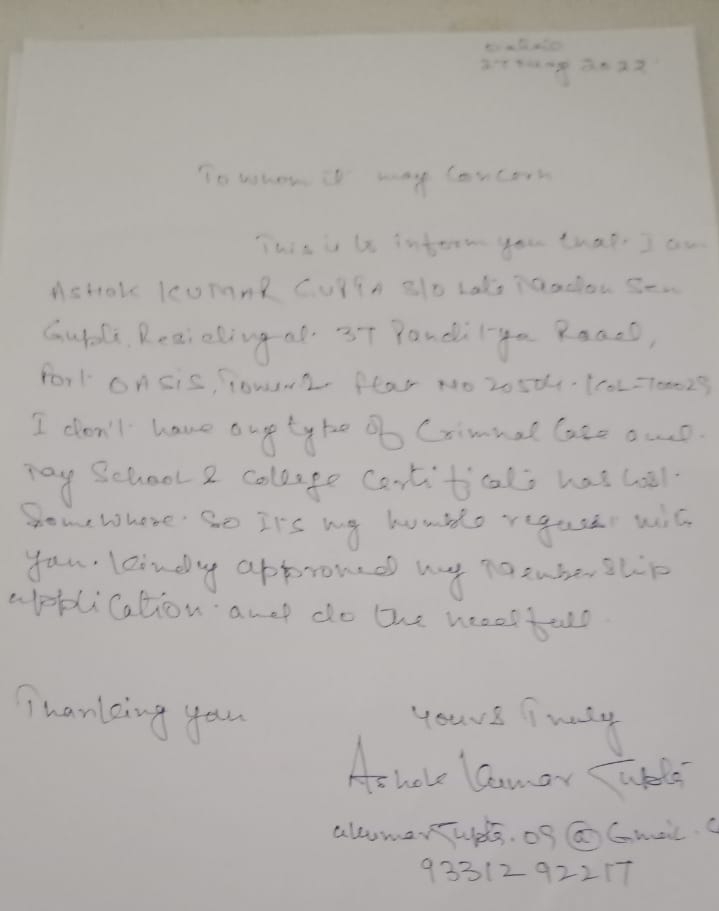 Dated
27 Aug 2022
To whom it may Concern
This is to inform you that I am
ASHOK KUMAR GUPTA S/O Late Madan Sen
Gupta, Residing at 37 Panditya Road,
Fort OASIS, Tower 2 flat No 20504. KOL-700029
I don't have any type of Criminal Case and
my School & College Certificate has lost
Somewhere. So It's my humble request with
you. Kindly approved my Membership
application and do the needfull.
Thanking you
Yours Truly
Ashok Kumar Gupta
akumargupta.09@Gmail.
9331292217